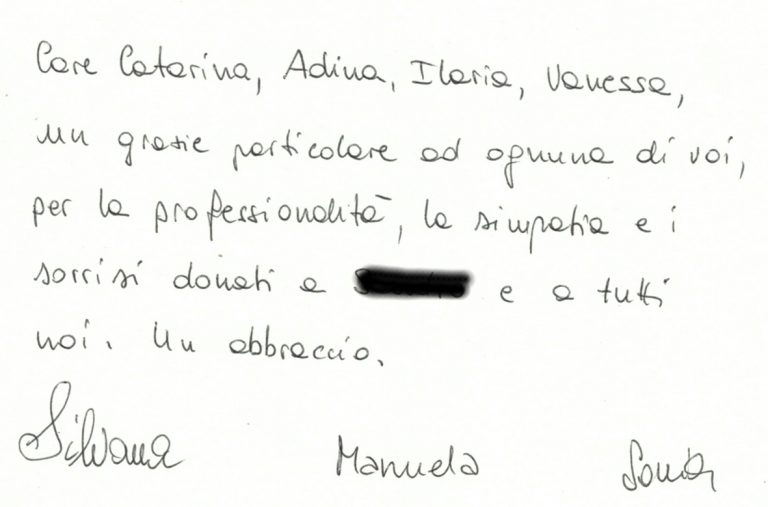 Care Catarina, Adina, Ilaria, Vanessa,
un grazie particolare ad ognuna di voi,
per la professionalità, la simpatia e i
sorrisi donati a e a tutti
noi. Un abbraccio.
Silvana Manuela Sonia